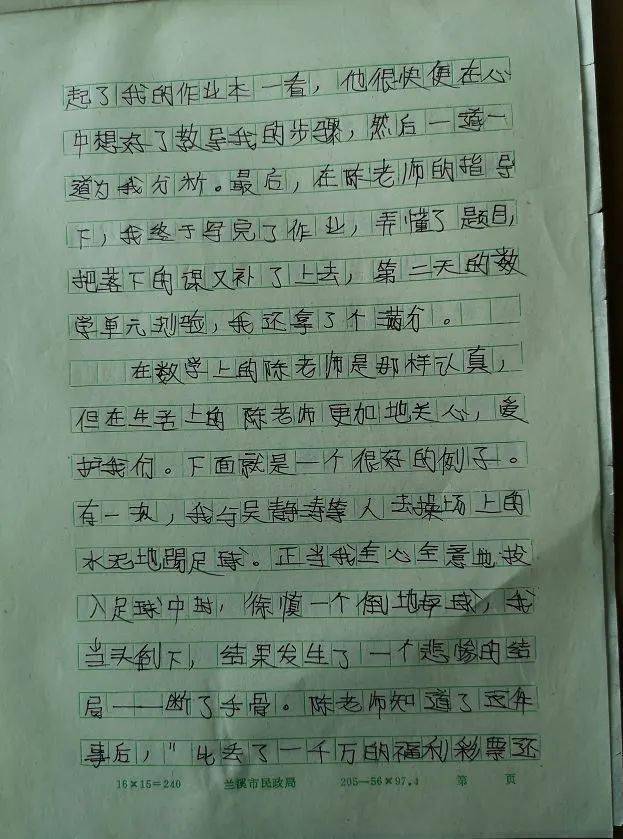 起了我的作业本一看，他很快便在心
中想好了教导我的步骤，然后一道一
道为我分析。最后，在陈老师的指导
下，我终于写完了作业，弄懂了题目，
把落下的课又补了上去，第二天的数
学单元测验，我还拿了个满分。
在数学上的陈老师是那样认真，
但在生活上的陈老师更加地关心，爱
护我们。下面就是一个很好的例子。
有一次，我与吴静涛等人去操场上的
水泥地踢足球。正当我全心全意地投
入足球中时，徐慎一个倒地铲球，我
当头倒下，结果发生了一个悲惨的结
局——断了手骨。陈老师知道了这件
事后，"比丢了一千万的福利彩票还
16×15=240 兰溪市民政局 205—56×97.4 第 页